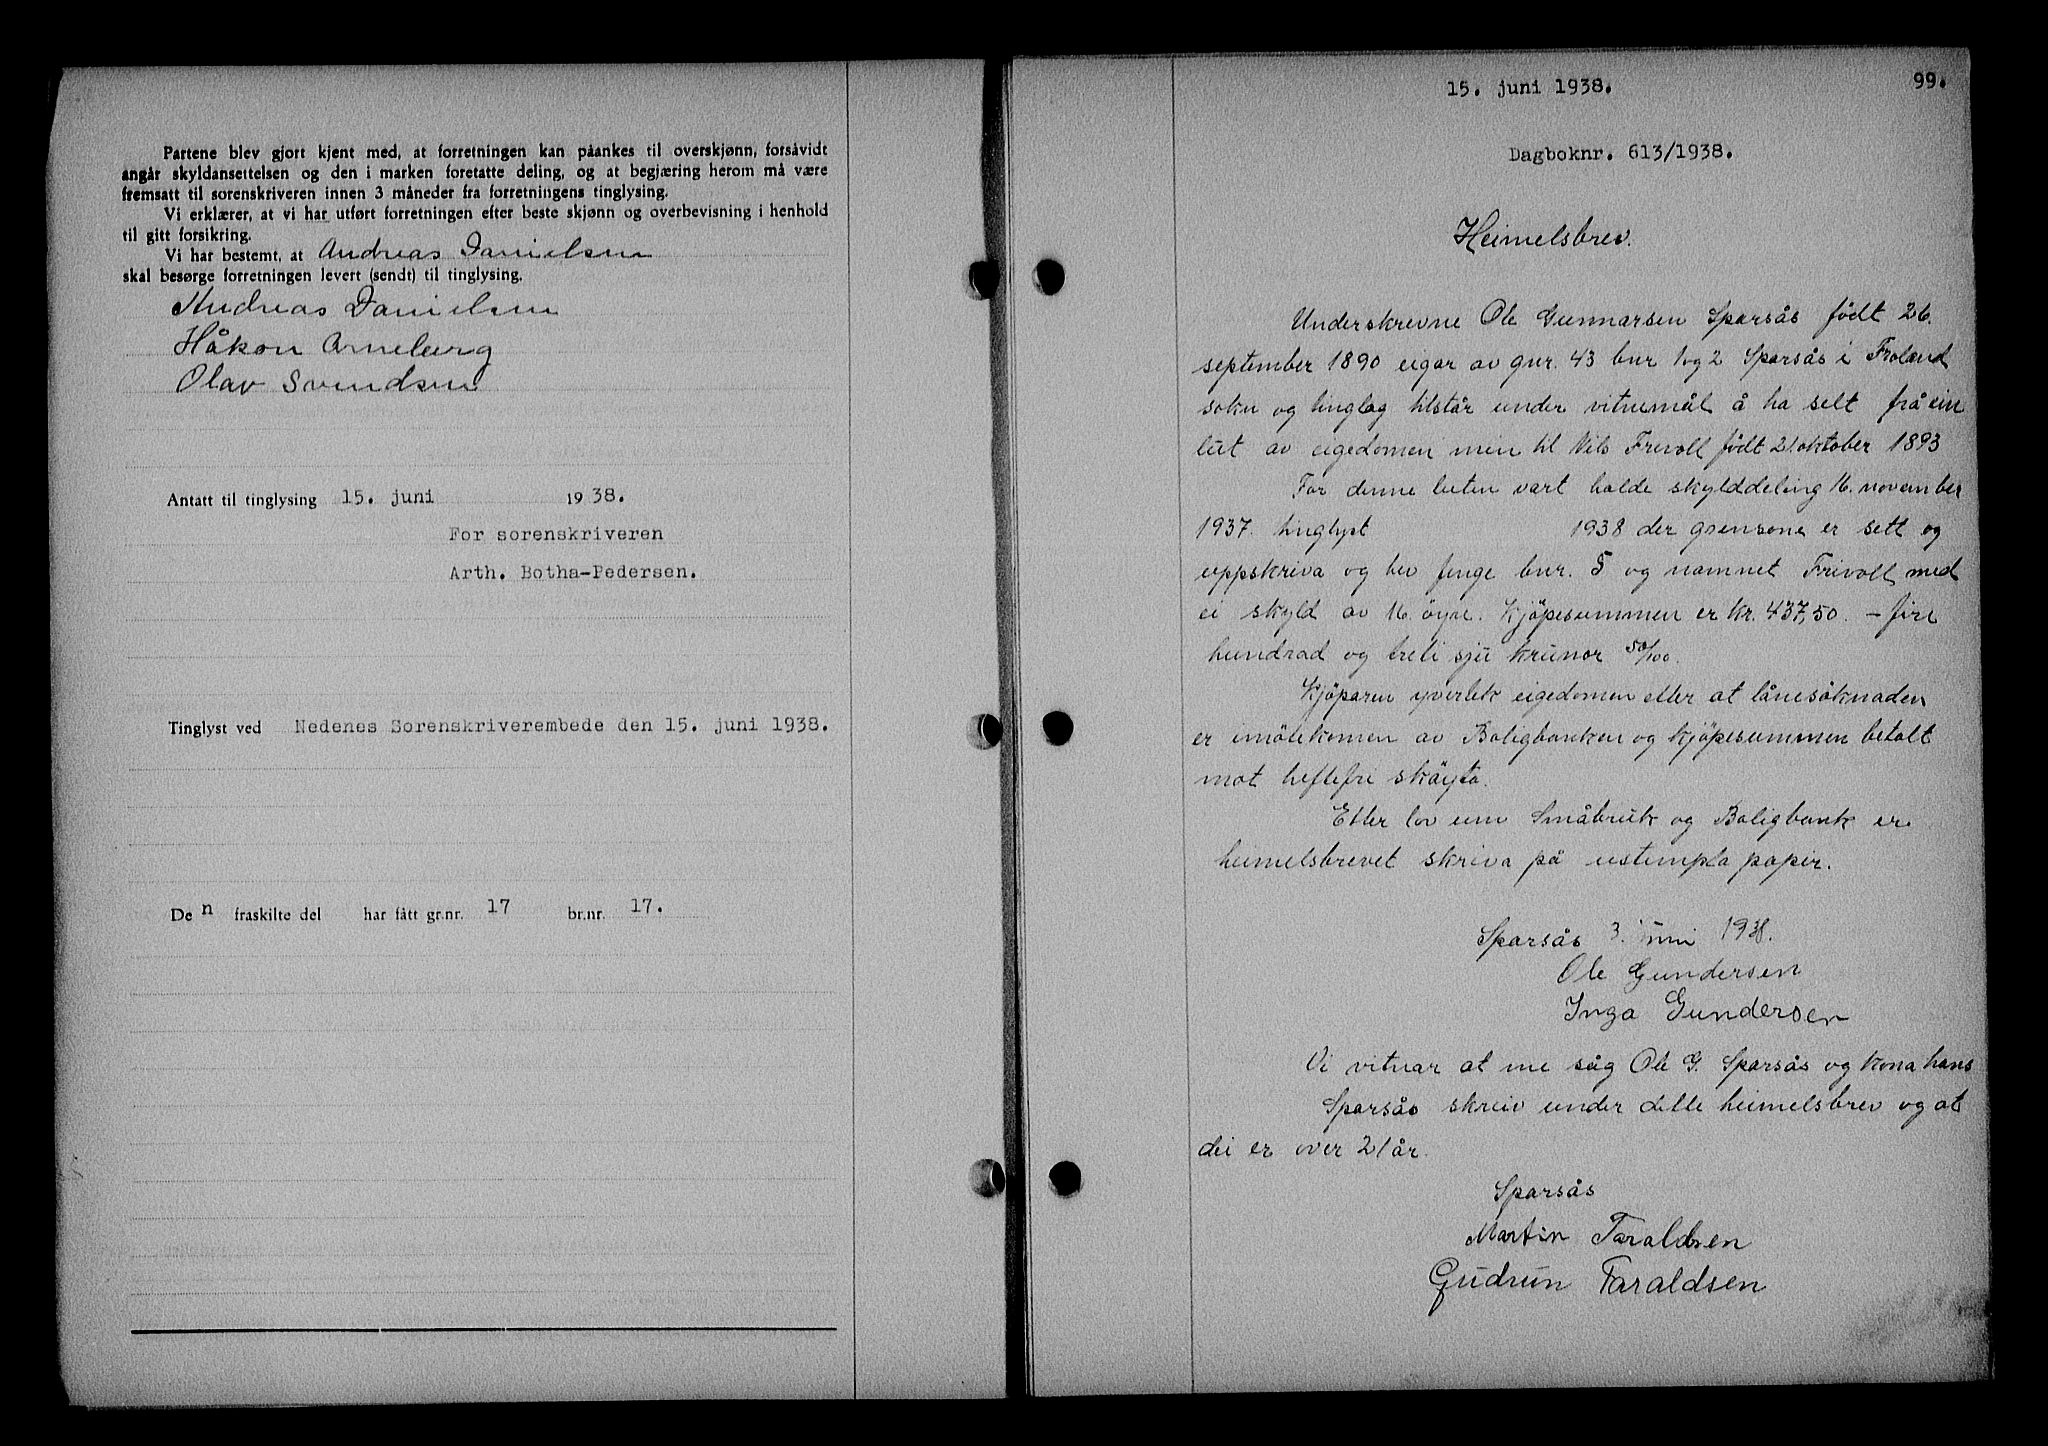 Partene blev gjort kjent med, at forretningen kan påankes til overskjønn, forsåvidt
angår skyldansettelsen og den i marken foretatte deling, og at begjæring herom må være
fremsatt til sorenskriveren innen 3 måneder fra forretningens tinglysing.
Vi erklærer, at vi har utført forretningen efter beste skjønn og overbevisning i henhold
til gitt forsikring.
Vi har bestemt, at Andreas Danielsen
skal besørge forretningen levert (sendt) til tinglysing.
Andreas Danielsen
Håkon Arneberg
Olav Svendsen
Antatt til tinglysing 15. juni 1938.
For sorenskriveren
Arth. Botha-Pedersen.
Tinglyst ved Nedenes Sorenskriverembede den 15. juni 1938.
Den fraskilte del har fått gr.nr. 17 br.nr. 17.
15. juni 1938. 99.
Dagboknr. 613/1938.
Heimelsbrev.
Underskrevne Ole Gunnarsen Sparsås født 26.
september 1890 eigar av gnr. 43 bnr 1 og 2 Sparsås i Froland
sokn og tinglag tilstår under vitnemål å ha selt frå ein
lut av eigedomen min til Nils Frivoll født 21 oktober 1893
For denne luten vart halde skylddeling 16. november
1937. tinglyst 1938 der grensone er sett og
uppskriva og hev fenge bnr. 5 og namnet Frivoll med
ei skyld av 16. øyre. Kjöpesummen er kr. 437,50. - fire
hundrad og treti sju krunor 50/100.
Kjöparen yvertek eigedomen etter at lånesöknaden
er imötekomen av Boligbanken og kjöpesummen betalt
mot heftefri sköyta.
Etter lov um Småbruk og Boligbank er
heimelsbrevet skriva på ustempla papir.
Sparsås 3. juni 1938.
Ole Gundersen
Inga Gundersen
Vi vitnar at me såg Ole G. Sparsås og kona hans
Sparsås skreiv under dette heimelsbrev og at
dei er over 21 år.
Sparsås
Martin Taraldsen
Gudrun Taraldsen